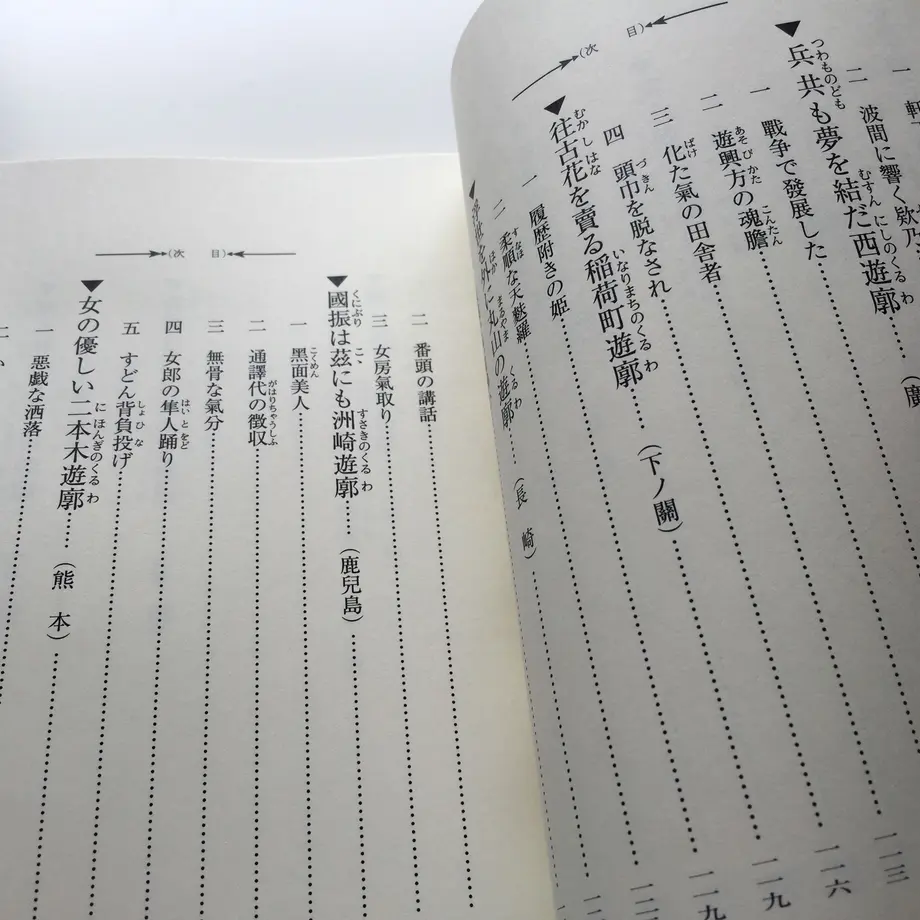 (次 目)
二 波間に響く欵乃
▼兵共も夢を結だ西遊廓……(廣
一 戰爭で發展した
二 遊興方の魂膽
三 化た氣の田舎者
四 頭巾を脱なされ
▼往古花を賣る稲荷町遊廓……(下ノ關)
一 履歴附きの姫
二 柔順な天麩羅
▼浮世を外に丸山の遊廓……(長崎)
一一三
一一六
一一九
一一九
(次 目)
二 番頭の講話
三 女房氣取り
▼國振は茲にも洲崎遊廓……(鹿兒島)
一 黑面美人
二 通譯代の徴収
三 無骨な氣分
四 女郎の隼人踊り
五 すどん背負投げ
▼女の優しい二本木遊廓……(熊本)
一 惡戯な洒落